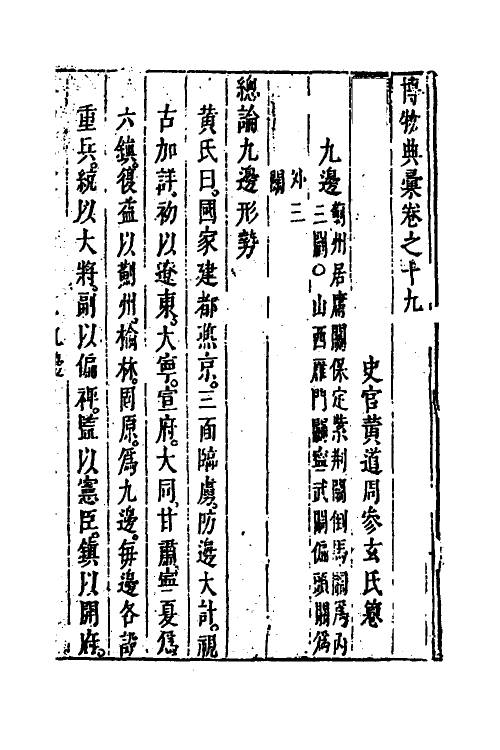 博物典彙卷之十九
史官黃道周參玄氏纂
九邊薊州居庸關保定紫荆關倒馬關爲內
三關○山西雁門關寧武關偏頭關爲
外三
關
總論九邊形勢
黃氏曰國家建都燕京三面臨虜防邊大計視
古加詳初以遼東大寧宣府大同甘肅寧夏爲
六鎮復益以薊州榆林固原爲九邊每邊各設
重兵統以大將副以偏裨監以憲臣鎮以開府
九邊